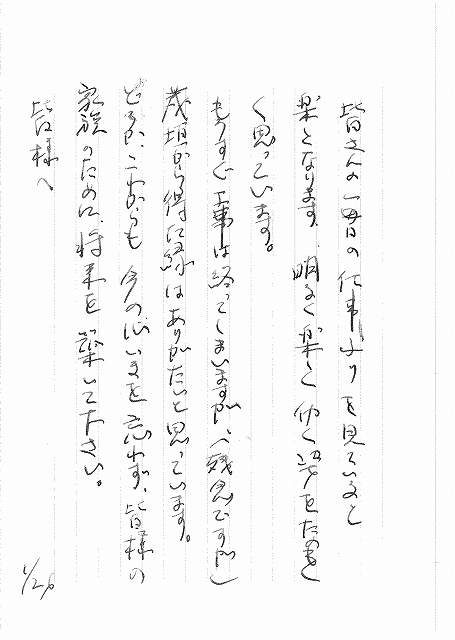 皆さんの毎日の仕事ふりを見ていると
楽しくなります。明るく楽しく仲く姿をたのもし
く思っています。
もうすぐ工事は終ってしまいますが、(残念ですが)
茂垣から得た縁はありがたいと思っています。
どうか、これからも今の心いきを忘れず、皆様の
家族のために、将来を築いて下さい。
皆様へ
1/26